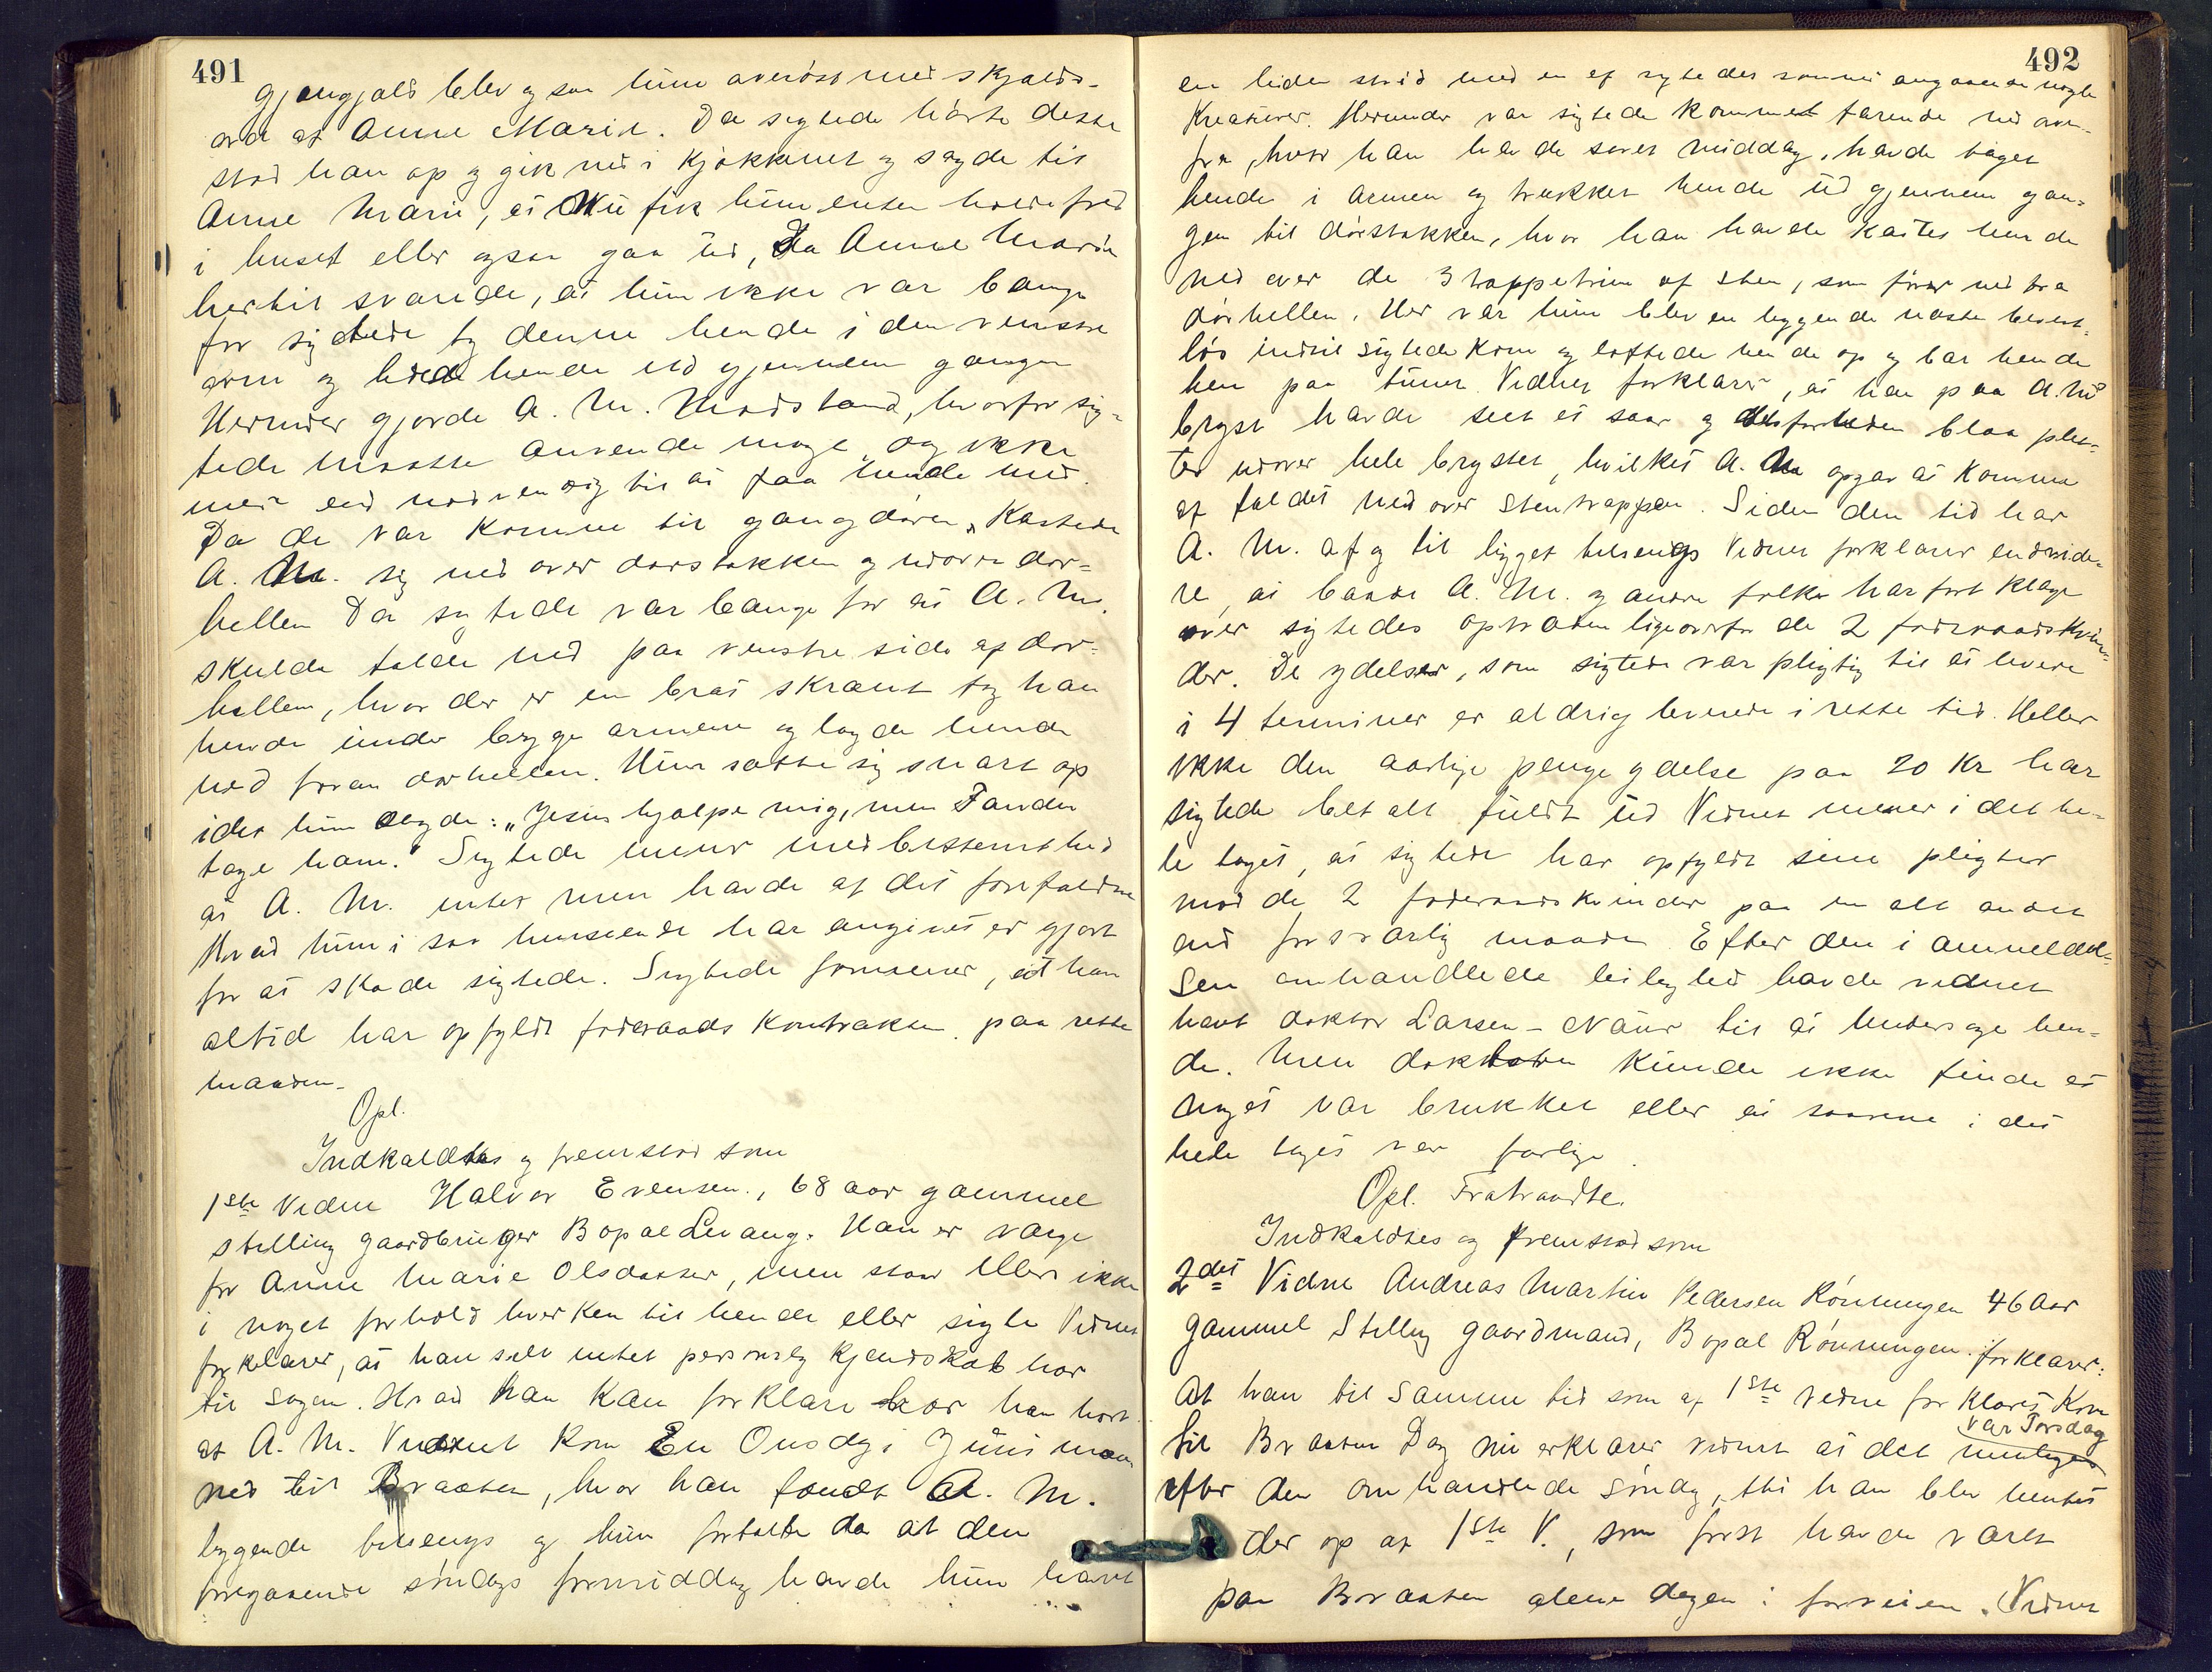 491
gjengjæld blev ogsaa hun overöst med skjælds-
ord af Anne Marie. Da sigtede hörte dette
stod han op og gik ned i kjökkenet og sagde til
Anne Marie, at nu fik hun enten holde fred
i huset eller ogsaa gaa ud, Da Anne Marie
hertil svarede, at hun ikke var bange
for sigtede tog denne hende i den venstre
arm og ledede hende ud gjennem gangen
Herunder gjorde A. M. Modstand, hvorfor sig-
tede maatte anvende magt, dog ikke
mer end nödvendig til at faa hende ud.
Da de var komne til gangdören, kastede
A. M. sig ned over dörstokken og udover dör-
hellen Da sigtede var bange for at A. M.
skulde falde ned paa venstre side af dör-
hellen, hvor der er en brat skrænt tog han
hende under begge armene og lagde hende
ned foran dörhellen. Hun satte sig snart op
idet hun sagde: "Jesus hjælpe mig, men Fanden
tage ham." Sigtede mener med bestemthed
at A. M. intet men havde af det forefaldne
Hvad hun i saa henseende har angivet er gjort
for at skade sigtede. Sigtede formener, at han
altid har opfyldt föderaads kontrakten paa rette
maaden.
Opl.
Indkaldtes og fremstod som
1ste Vidne Halvor Evensen, 68 aar gammel
stilling gaardbruger Bopæl Levang. Han er værge
for Anne Marie Olsdatter, men staar ellers ikke
i noget forhold hverken til hende eller sigte Vidnet
forklarer, at han selv intet personlig kjendskab har
til sagen. Hvad han kan forklare har han hört
af A. M. Vidnet kom En Onsdag i Juni maa-
ned til Braaten, hvor han fandt A. M.
liggende tilsengs og hun fortalte da at den
foregaaende söndags formiddag havde hun havt
492
en liden strid med en af sigtedes sönner angaaende nogle
Kreaturer. Herunder var sigtede kommet farende ned oven-
fra, hvor han havde sovet middag, havde taget
hende i armen og trukket hende ud gjennem gan-
gen til dörstokken, hvor han havde kastet hende
ned over de 3 trappetrin af sten, som förer ned fra
dörhellen. Her var hun blev en liggende næste bevist-
lös indtil sigtede kom og löftede hende op og bar hende
hen paa tunet. Vidnet forklarer, at han paa A. M's
bryst havde seet et saar og desforuden blaa plet-
ter udover hele brystet, hvilket A. M. opgav at komme
af faldet ned over stentrappen. Siden den tid har
A. M. af og til ligget tilsengs Vidnet forklarer endvide-
re, at baade A. M. og andre folk har fört klage
over sigtedes optræden ligeoverfor de 2 föderaadskvin-
der. De ydelser, som sigtede var pligtig til at levere
i 4 terminer er aldrig leveret i rette tid. Heller
ikke den aarlige pengeydelse paa 20 Kr har
sigtede betalt fuldt ud Vidnet mener i det he-
le taget, at sigtede har opfyldt sine pligter
mod de 2 föderaadskvinder paa en alt andet
end forsvarlig maade. Efter den i anmeldel-
sen omhandlede leilighed havde vidnet
havt doktor Larsen-Naur til at undersöge hen-
de. Men doktoren kunde ikke finde at
noget var brukket eller at saarene i det
hele taget var farlige.
Opl. Fratraadte.
Indkaldtes og fremstod som
2det Vidne Andreas Martin Pedersen Rönningen 46 Aar
gammel Stilling gaardmand, Bopæl Rönningen forklarer:
At han til samme tid som af 1ste vidne forklaret kom
var Torsdag
til Braaten Dog nu erklærer vidnet at det
efter den omhandlede söndag, thi han blev hentet
der op af 1ste V., som först havde været
paa Braaten alene dagen i forveien. Vidnet